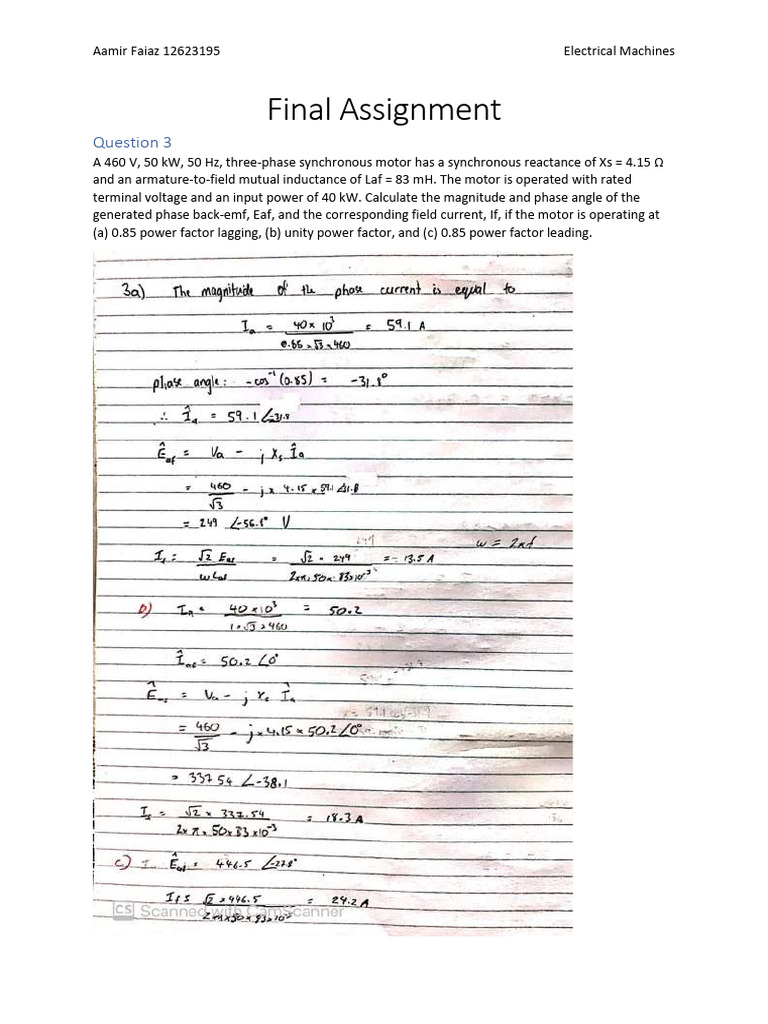 Aamir Faiaz 12623195 Electrical Machines
Final Assignment
Question 3
A 460 V, 50 kW, 50 Hz, three-phase synchronous motor has a synchronous reactance of Xs = 4.15 Ω
and an armature-to-field mutual inductance of Laf = 83 mH. The motor is operated with rated
terminal voltage and an input power of 40 kW. Calculate the magnitude and phase angle of the
generated phase back-emf, Eaf, and the corresponding field current, If, if the motor is operating at
(a) 0.85 power factor lagging, (b) unity power factor, and (c) 0.85 power factor leading.
3a) The magnitude of the phase current is equal to
Ia = 40 × 10³ = 59.1 A
0.85 × √3 × 460
phase angle: -cos⁻¹ (0.85) = -31.8°
∴ Îa = 59.1 ∠-31.8
Êaf = Va - j Xs Îa
= 460 - j × 4.15 × 59.1
√3
= 249 ∠-56.1° V
w = 2πf
If = √2 Eaf = √2 × 249 = 13.5 A
wLaf 2×π×50×83×10⁻³
b) Ia = 40 × 10³ = 50.2
1 × √3 × 460
= 50.2 ∠0°
= Va - j Xs Îa
= 460 - j × 4.15 × 50.2 ∠0°
√3
= 337 54 ∠-38.1
If = √2 × 337.54 = 18.3 A
2×π×50×83×10⁻³
c) Êaf = 446.5
√2 × 446.5 = 24.2 A
CS Scanned with CamScanner